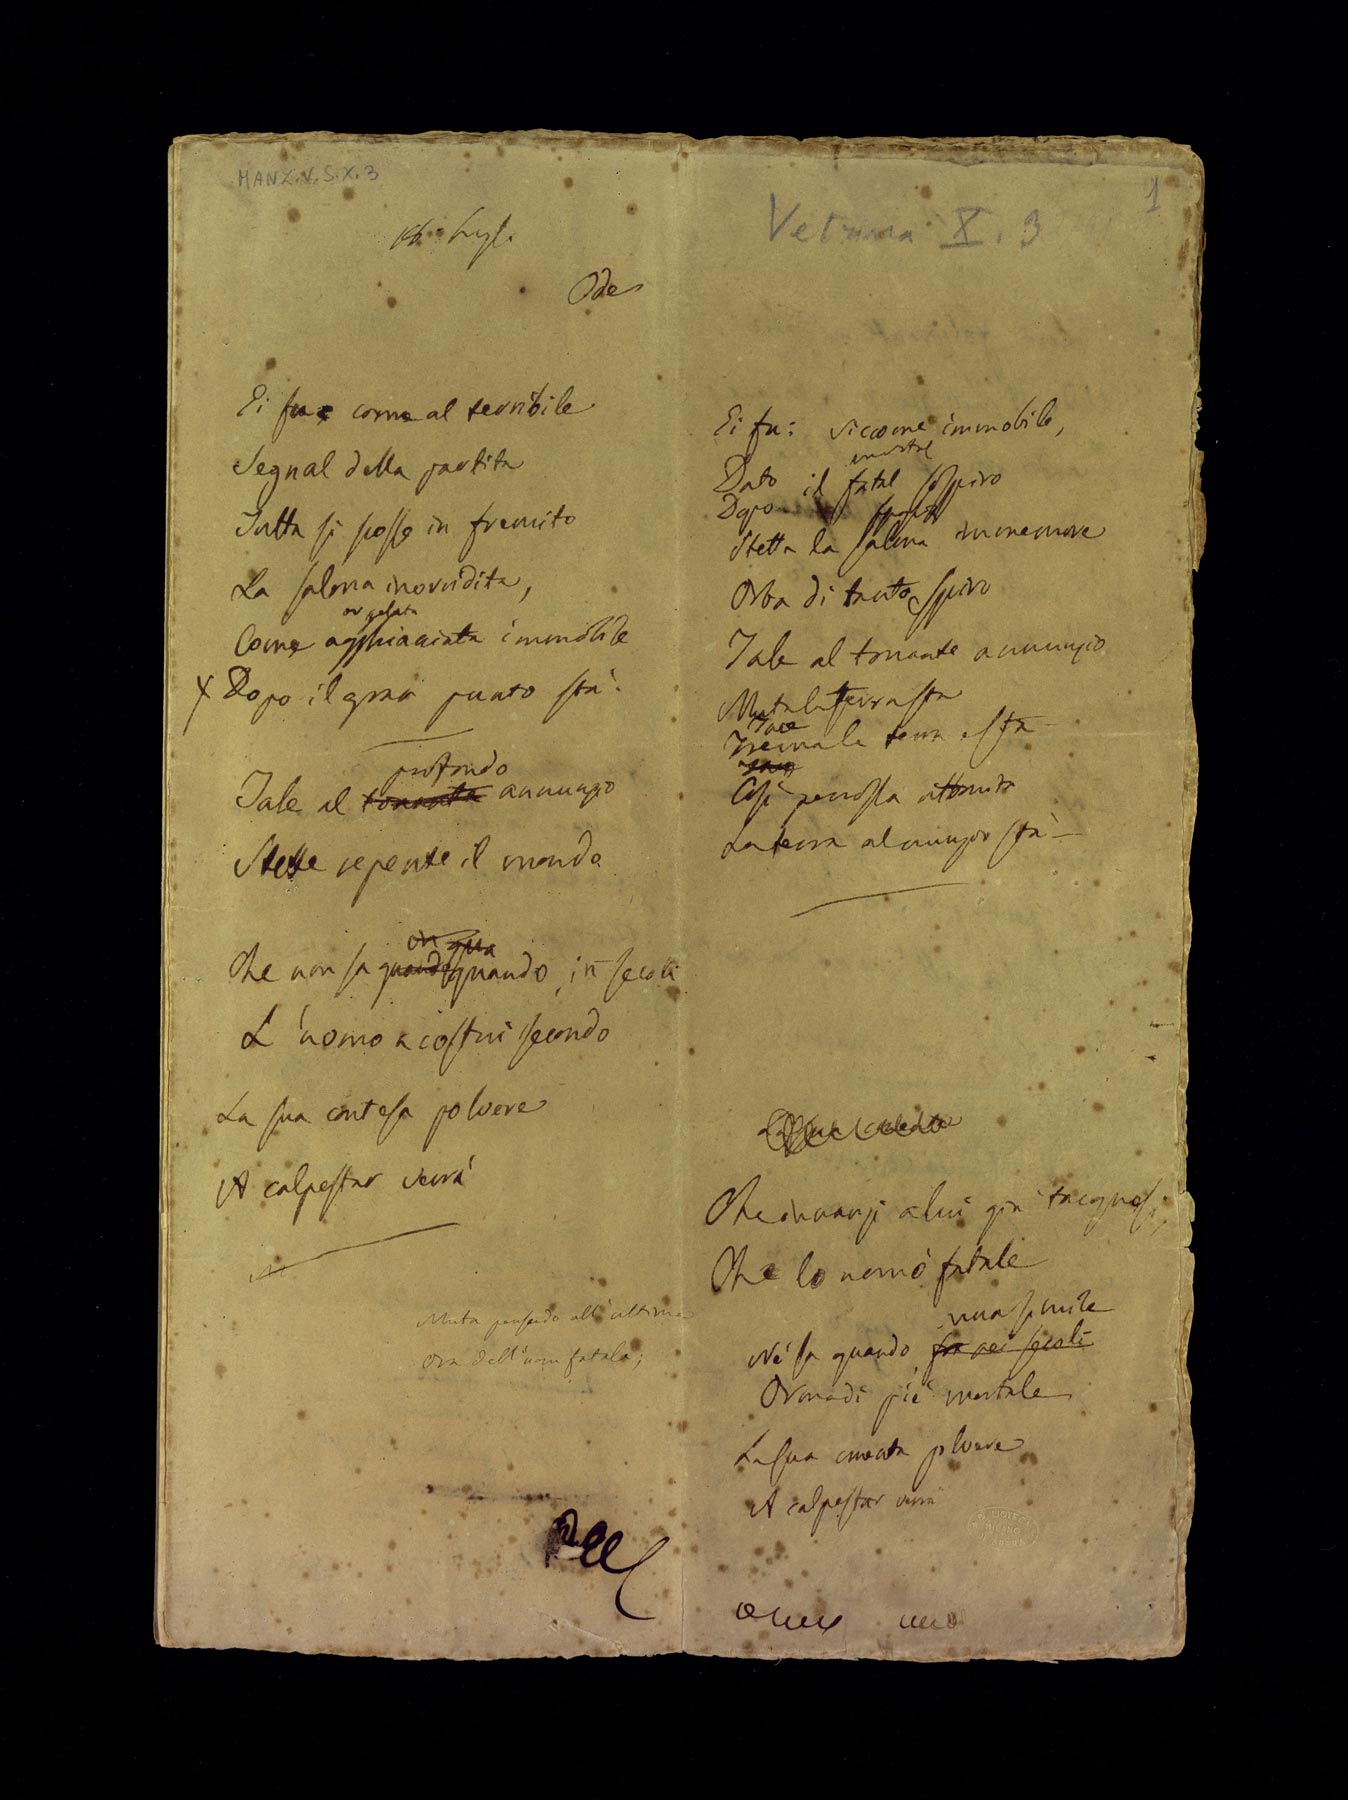 MANZ.V.S.X.3
Ode
Ei fu; come al terribile
Segnal della partita
Tutta si scosse in fremito
La salma inorridita,
or gelata
Come agghiacciata immobile
X Dopo il gran punto sta:
profondo
Tale al tonante annunzio
Stette repente il mondo
or qua
Che non sa quando quando, in secoli
L'uomo a costui secondo
La sua contesa polvere
A calpestar verrà
Muta pensando all'ultima
Ora dell'uom fatale;
1
Vetrina X. 3
Ei fu: siccome immobile,
mortal
Dato il fatal sospiro
Dopo
Stette la salma immemore
Orba di tanto spiro
Tale al tonante annunzio
Muta la terra sta
Tace
Trema la terra e sta
Così percossa attonita
La terra al nunzio sta
Che innanzi a lui già tacquesi,
Che lo nomò fatale
una simile
Nè sa quando, fra sei secoli
Orma di piè mortale
La sua cruenta polvere
A calpestar verrà